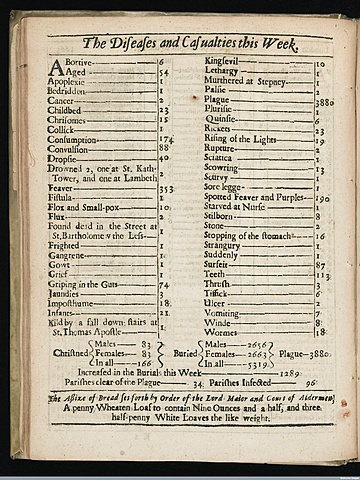 The Diseases and Casualties this Week.
Abortive 6
Aged 54
Apoplexie 1
Bedridden 1
Cancer 2
Childbed 23
Chrisomes 15
Collick 1
Consumption 174
Convulsion 88
Dropsie 40
Drowned 2, one at St. Kath-
Tower, and one at Lambeth 2
Feaver 353
Fistula 1
Flox and Small-pox 10
Flux 2
Found dead in the Street at
St. Bartholomew the Less 1
Frighted 1
Gangrene 1
Gowt 1
Grief 1
Griping in the Guts 74
Jaundies 3
Imposthume 18
Infants 21
Kild by a fall down stairs at
St. Thomas Apostle 1
Kingsevil 10
Lethargy 1
Murthered at Stepney 1
Palsie 2
Plague 3880
Plurisie 1
Quinsie 6
Rickets 23
Rising of the Lights 19
Rupture 2
Sciatica 1
Scowring 13
Scurvy 1
Sore legge 1
Spotted Feaver and Purples 190
Starved at Nurse 1
Stilborn 8
Stone 2
Stopping of the stomach 16
Strangury 1
Suddenly 1
Surfeit 87
Teeth 113
Thrush 3
Tissick 6
Ulcer 2
Vomiting 7
Winde 8
Wormes 18
Christned Males 83 Females 83 In all 166 Buried Males 2656 Females 2663 In all 5319 Plague 3880.
Increased in the Burials this Week 1289
Parishes clear of the Plague 34 Parishes Infected 96
The Assize of Bread set forth by Order of the Lord Maior and Court of Aldermen,
A penny Wheaten Loaf to contain Nine Ounces and a half, and three
half-penny White Loaves the like weight.